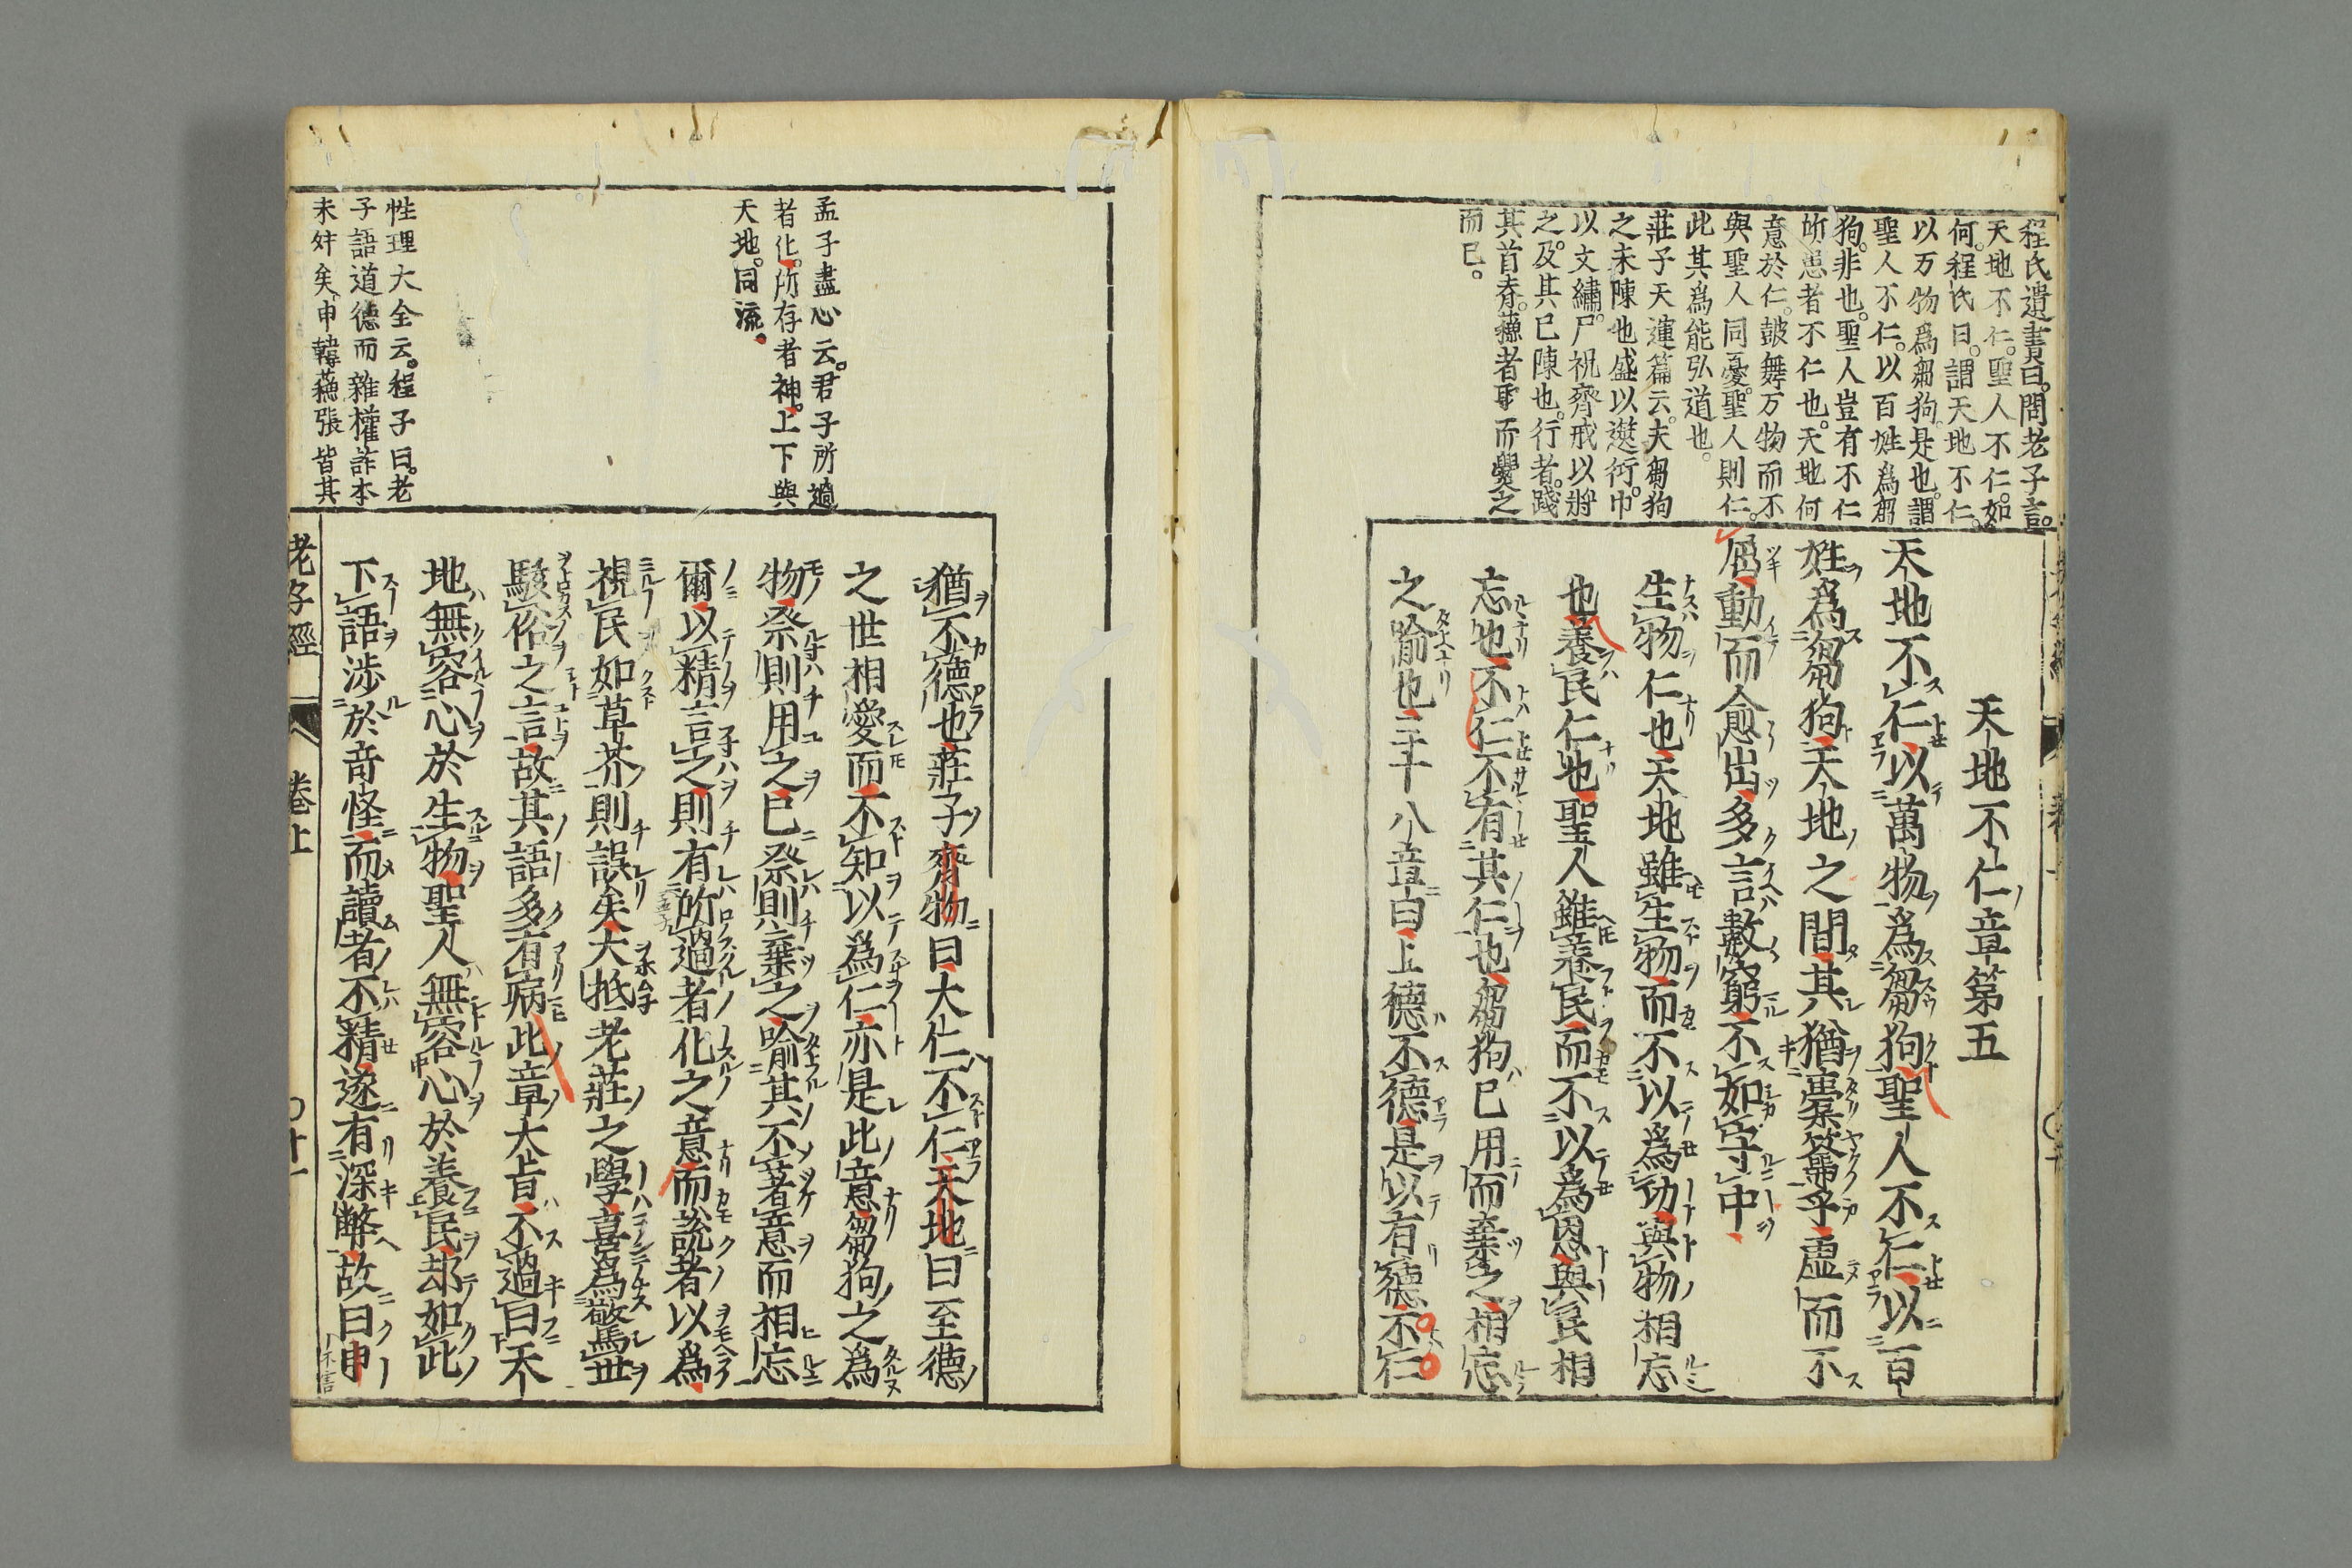 程氏遺書曰。問老子言。
天地不仁。聖人不仁。如
何。程氏曰。謂天地不仁。
以万物爲芻狗。是也。謂
聖人不仁。以百姓爲芻
狗。非也。聖人豈有不仁
所患者不仁也。天地何
意於仁。皷舞万物而不
與聖人同憂。聖人則仁。
此其爲能弘道也。
莊子天運篇云。夫芻狗
之未陳也盛以篋衍。巾
以文繡。尸祝齊戒以將
之。及其已陳也。行者。踐
其首脊。蘓者取而爨之
而已。
天地不仁章第五
天地不仁以萬物爲芻狗聖人不仁以百
姓爲芻狗天地之間其猶橐籥乎虛而不
屈動而愈出多言數窮不如守中
生物仁也天地雖生物而不以爲功與物相忘
也養民仁也聖人雖養民而不以爲恩與民相
忘也不仁不有其仁也芻狗已用而棄之相忘
之喻也三十八章曰上德不德是以有德不仁
孟子盡心云。君子所過
者化。所存者神。上下與
天地。同流。
性理大全云。程子曰。老
子語道德而雜權詐本
末舛矣、申韓蘓張皆其
猶不德也莊子齊物曰大仁不仁天地曰至德
之世相愛而不知以爲仁亦是此意芻狗之爲
物祭則用之已祭則棄之喻其不著意而相忘
爾以精言之則有所過者化之意而說者以爲
視民如草芥則誤矣大抵老莊之學喜爲驚世
駭俗之言故其語多有病此章大旨不過曰天
地無容心於生物聖人無容心於養民却如此
下語涉於奇怪而讀者不精遂有深弊故曰申
老子經 卷上 〇十一